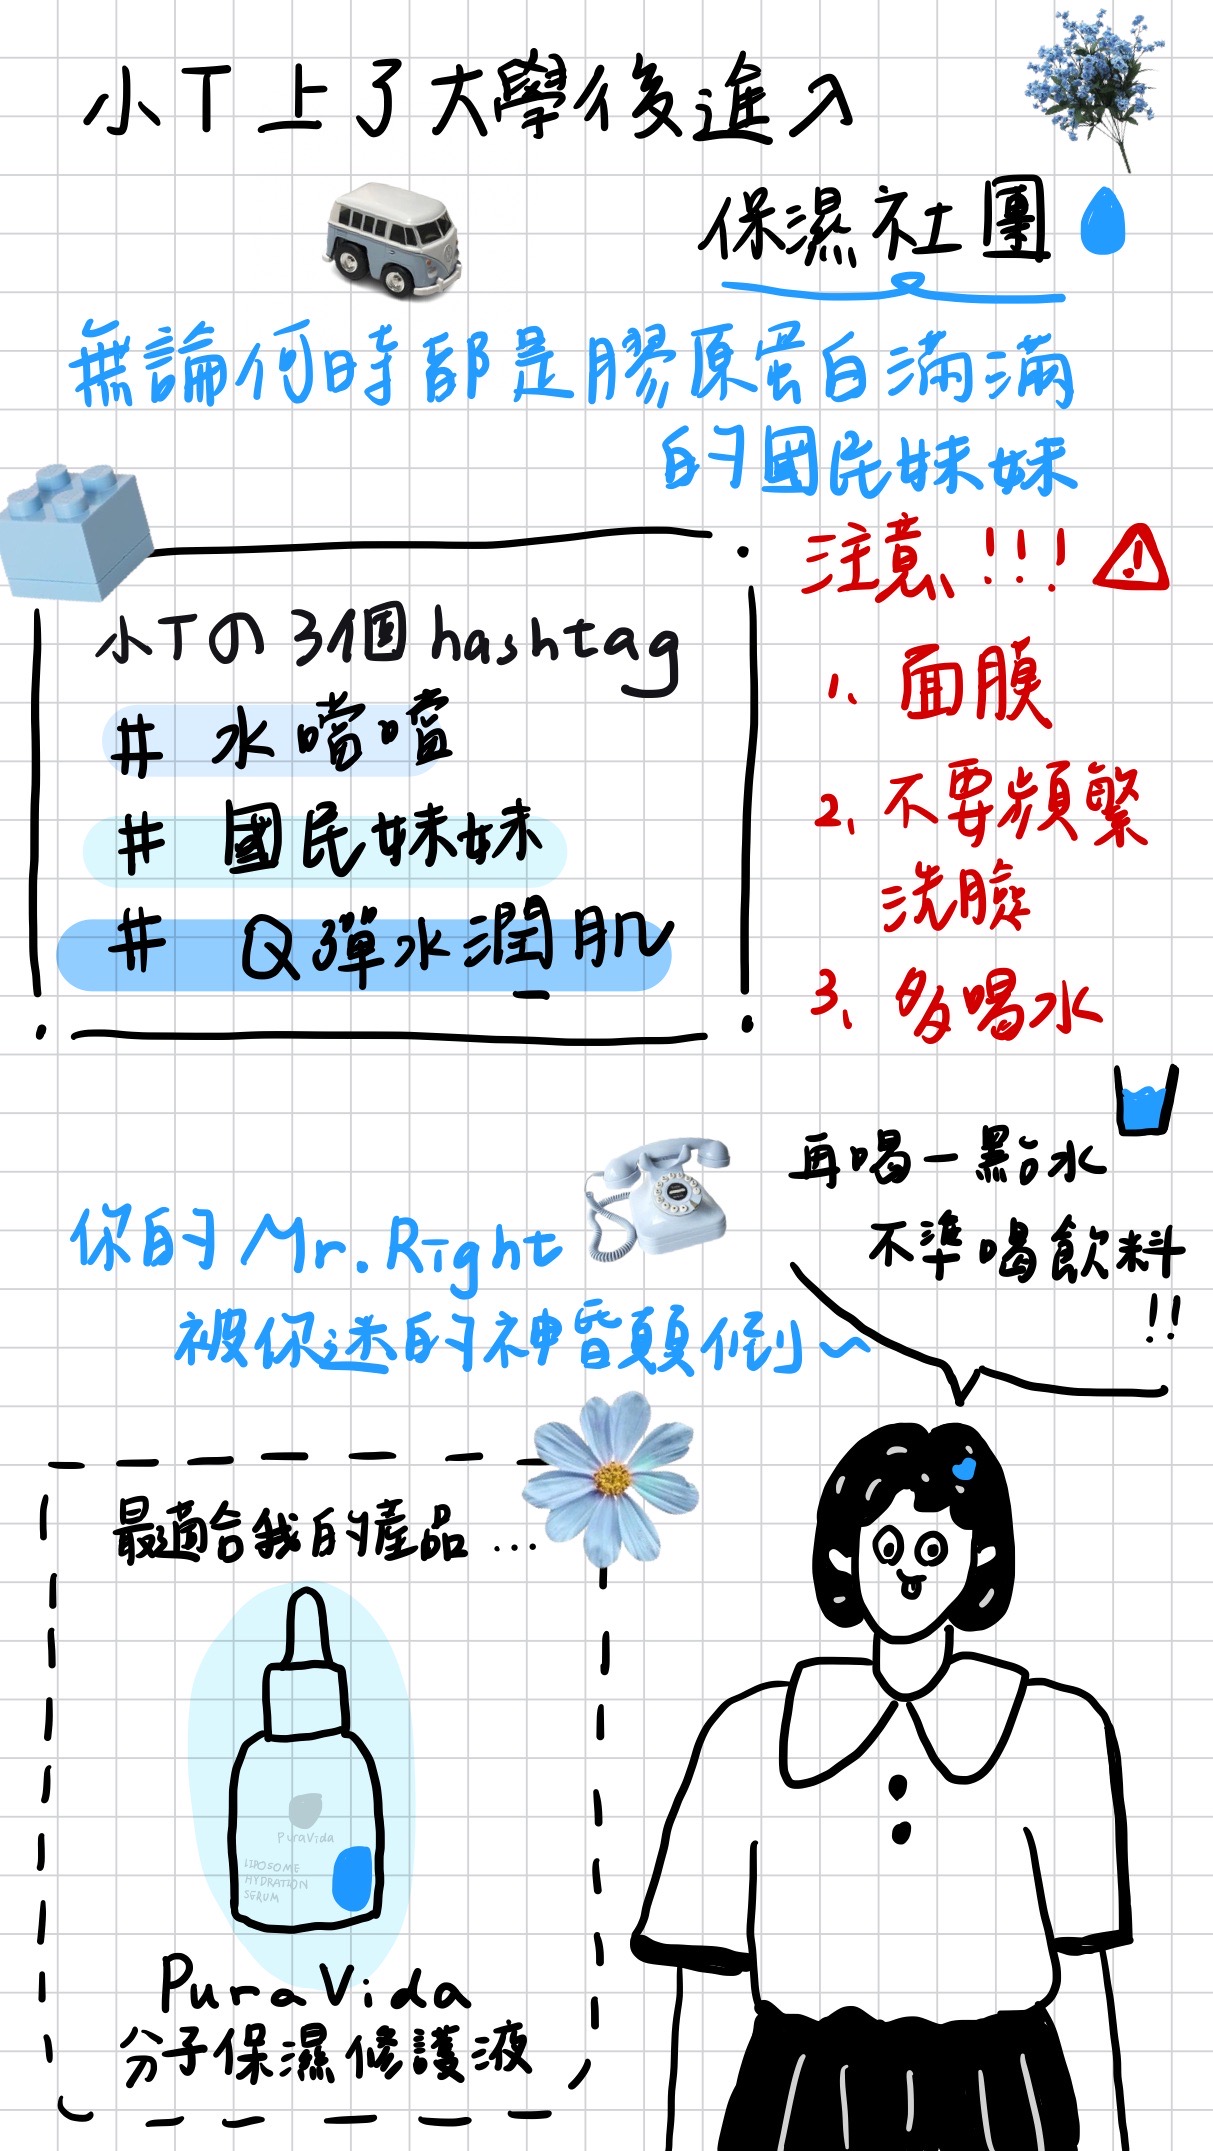 小T上了大學後進入
保濕社團
無論何時都是膠原蛋白滿滿
的國民妹妹
注意!!!
小Tの3個hashtag
# 水噹噹
# 國民妹妹
# Q彈水潤肌
1. 面膜
2. 不要頻繁
洗臉
3. 多喝水
再喝一點水
不準喝飲料
!!
你的Mr.Right
被你迷的神昏顛倒~
最適合我的產品...
PuraVida
LIPOSOME
HYDRATION
SERUM
PuraVida
分子保濕修護液